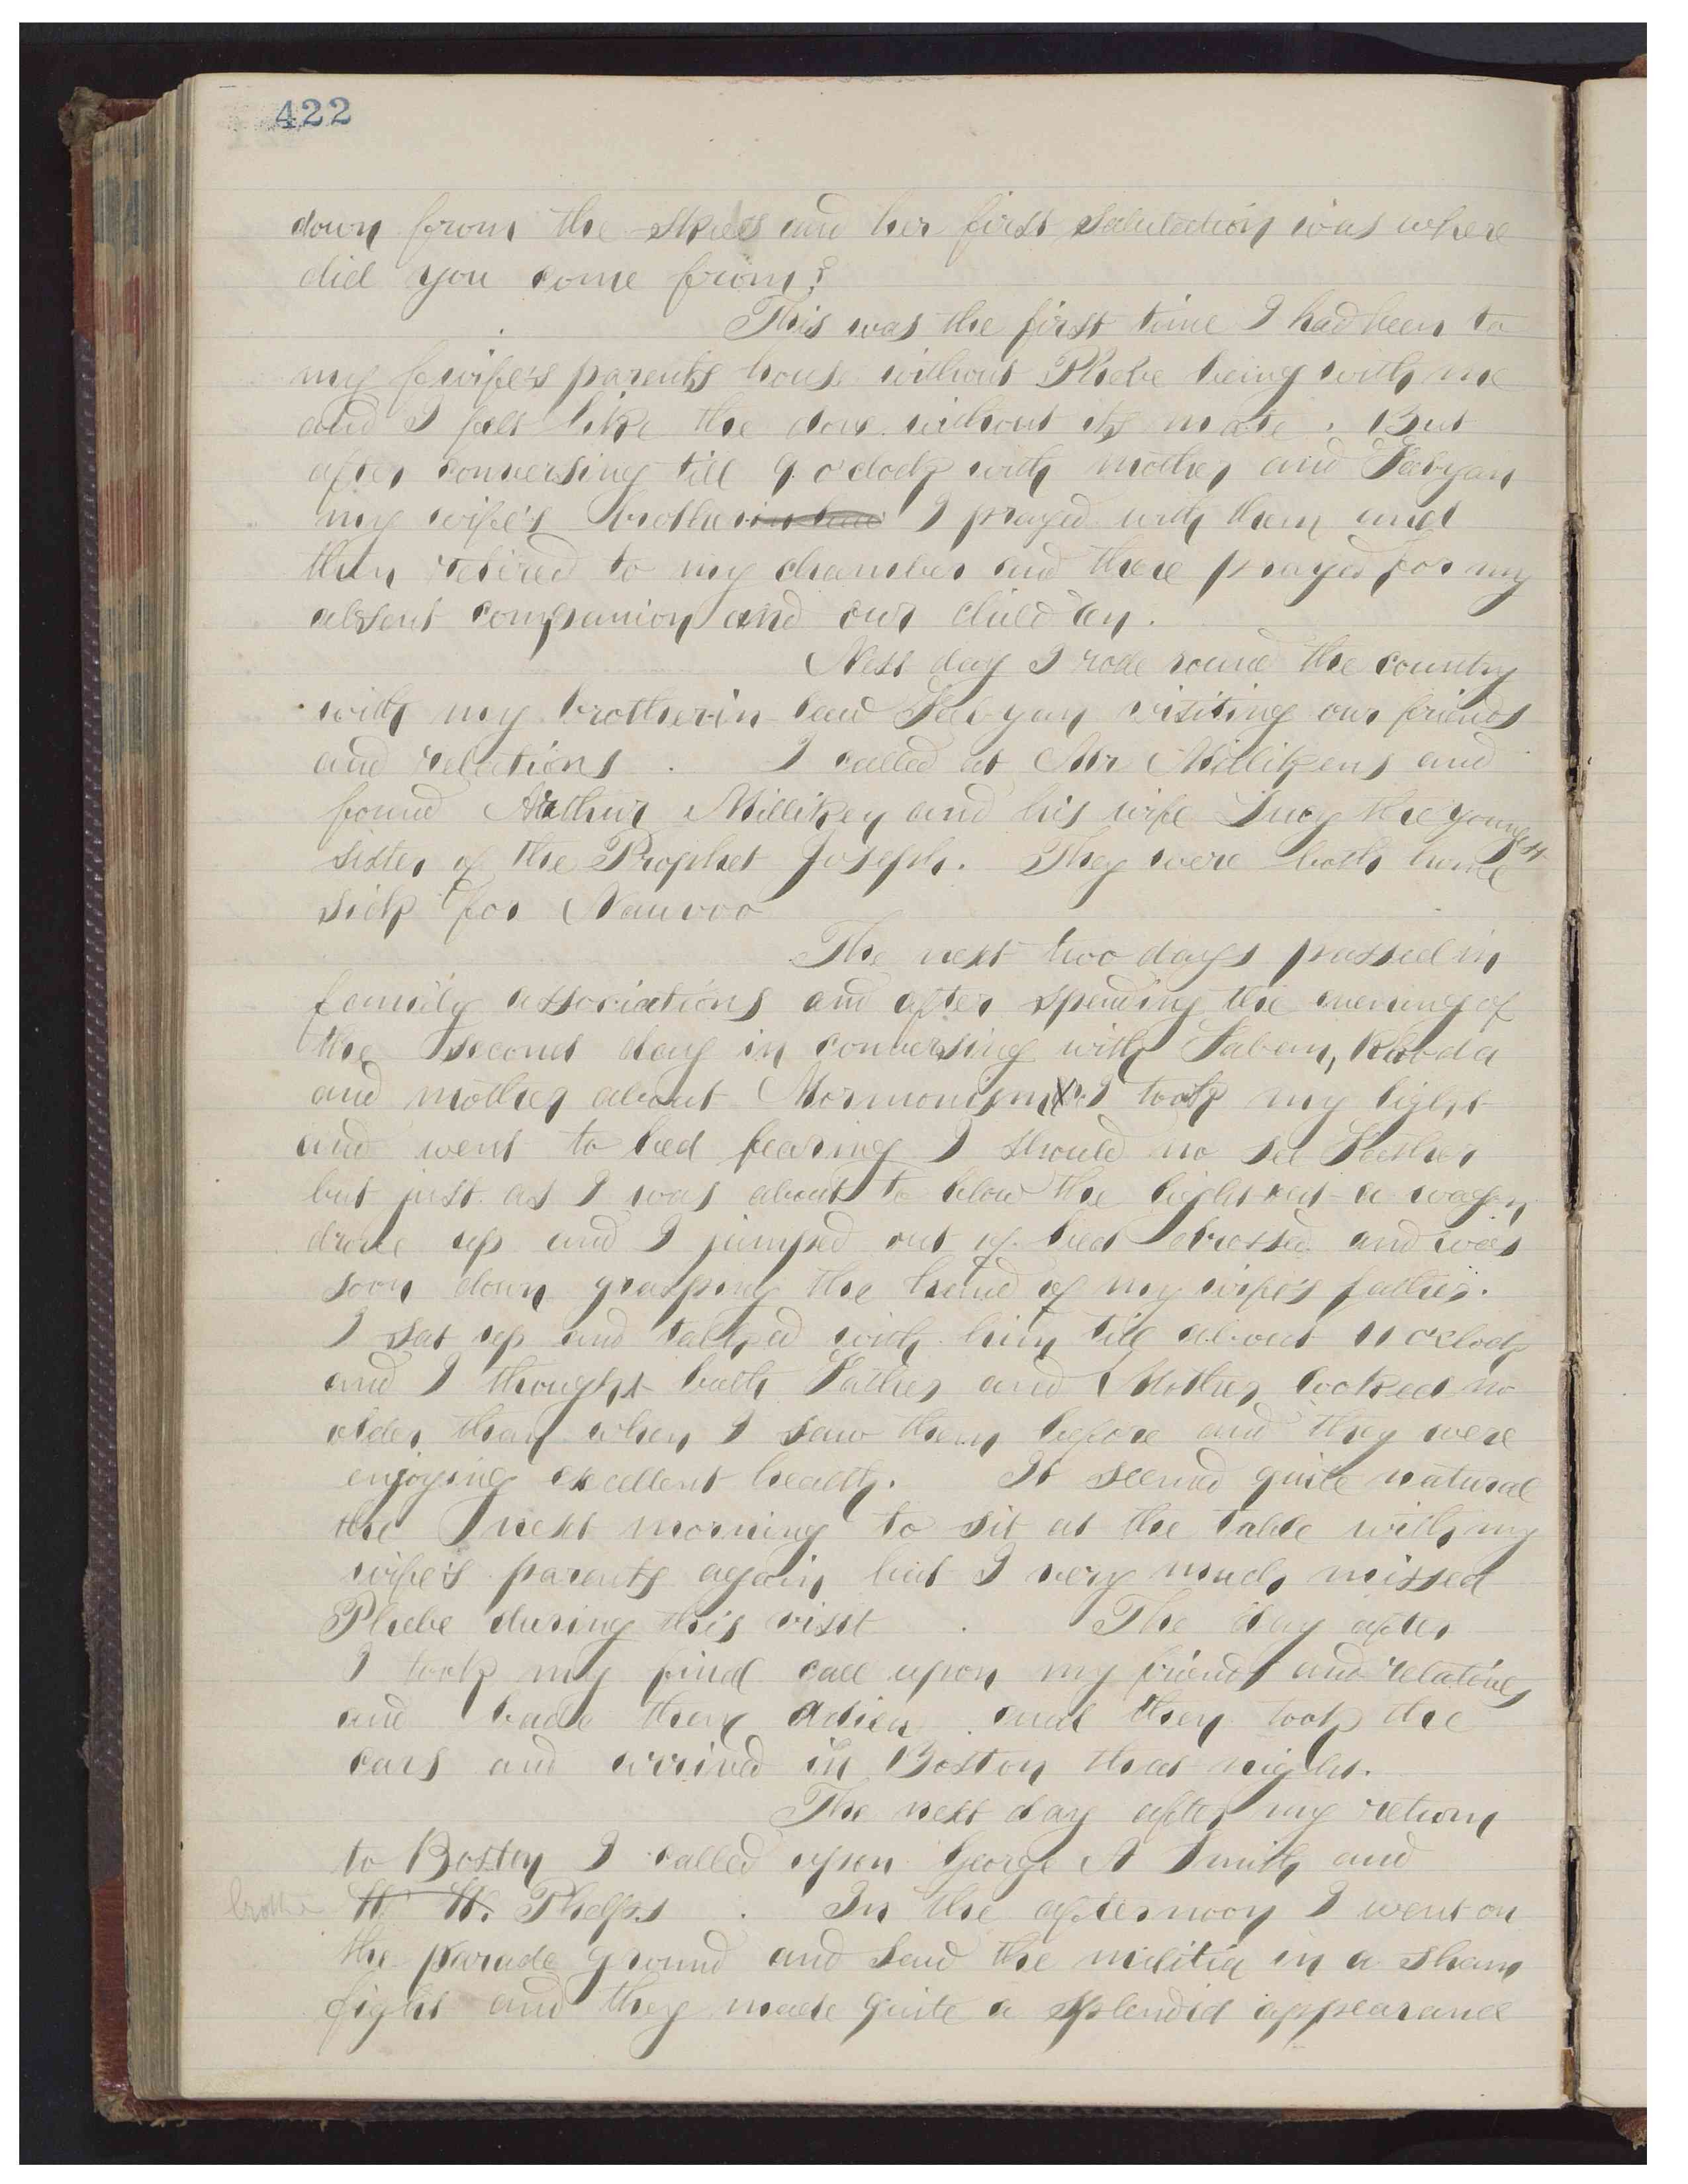 422
down from the skies and her first salutation was where
did you come from?
This was the first time I had been to
my wife's parents house without Phebe being with me
and I felt like the dove without its mate. But
after conversing till 9 o'clock with mother and Fabyan
my wife's brother in law I prayed with them and
then retired to my chamber and there prayed for my
absent companion and our children.
Next day I rode round the country
with my brother in law Fabyan visiting our friends
and relations. I called at Mr Millikens and
found Arthur Milliken and his wife Lucy the youngest
sister of the Prophet Joseph. They were both home
sick for Nauvoo
The next two days passed in
family associations and after spending the evening of
the second day in conversing with Fabem, Rhoda
and mother about Mormonism I took my light
and went to bed fearing I should no see Father
but just as I was about to blow the light out a wagon
drove up and I jumped out of bed dressed and was
soon down grasping the hand of my wife's father.
I sat up and talked with him till about 11 o'clock
and I thought both Father and Mother looked no
older than when I saw them before and they were
enjoying excellent health. It seemed quite natural
the next morning to sit at the table with my
wife's parents again but I very much missed
Phebe during this visit. The day after
I took my final call upon my friends and relatives
and bade them adieu and then took the
cars and arrived in Boston that night.
The next day after my return
to Boston I called upon George A Smith and
brother W. W. Phelps. In the afternoon I went on
the parade ground and saw the militia in a sham
fight and they made quite a splendid appearance